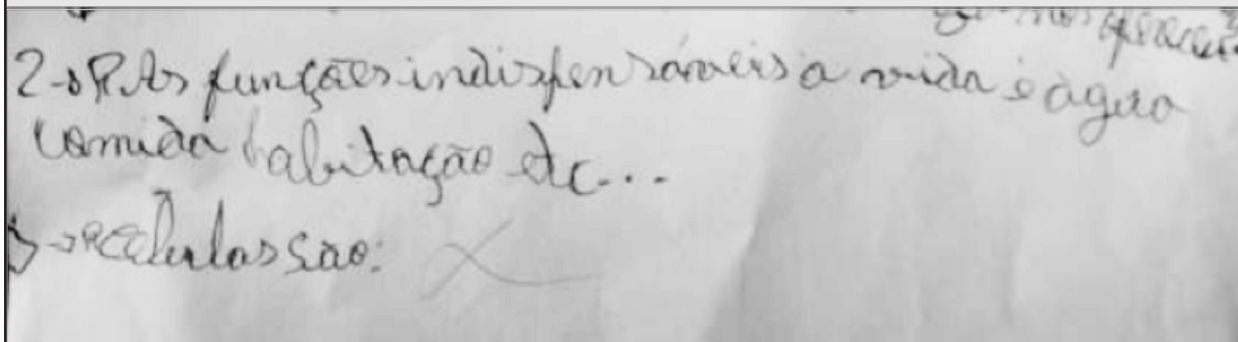 2-R. As funções indispensáveis a vida é água
comida habitação etc...
3-R Células são: